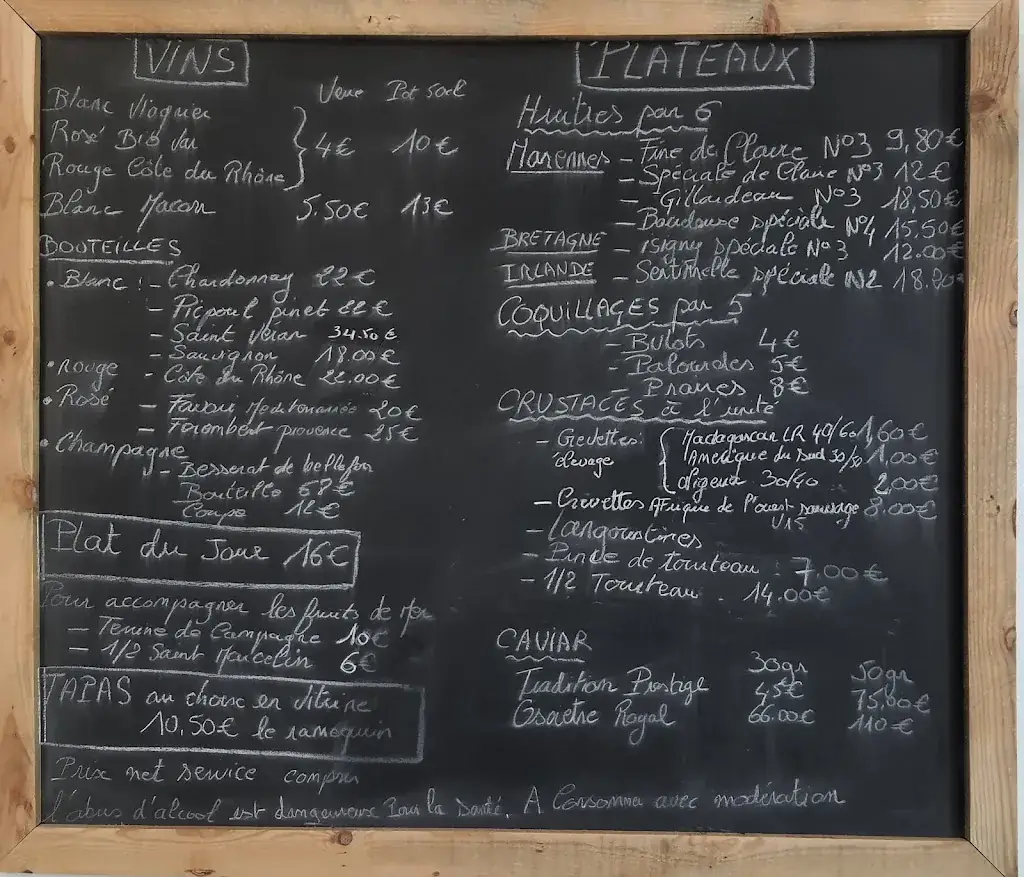 VINS
Verre Pot 50cl
Blanc Viognier
Rosé Bio Var
Rouge Côte du Rhône
4€ 10€
Blanc Macon 5.50€ 13€
BOUTEILLES
• Blanc : - Chardonnay 22€
- Picpoul pinet 22€
- Saint Veran 34.50€
- Sauvignon 18.00€
• rouge - Côte du Rhône 22.00€
• Rosé
- Favori Mediterranée 20€
- provence 25€
• Champagne
- Besserat de bellefon
Bouteille 58€
Coupe 12€
Plat du Jour 16€
Pour accompagner les fruits de Mer
- Terrine de Campagne 10€
- 1/2 Saint Marcelin 6€
TAPAS au choix en vitrine
10,50€ le ramequin
Prix net service compris
l'abus d'alcool est dangereux Pour la Santé. A Consommer avec modération
PLATEAUX
Huitres par 6
Marennes - Fine de Claire N°3 9,80€
- Spéciale de Claire N°3 12€
- Gillardeau N°3 18,50€
- spéciale N°4 15,50€
BRETAGNE - isigny spéciale N°3 12.00€
IRLANDE - Sentinelle spéciale N2
COQUILLAGES par 5
- Bulots 4€
- Palourdes 5€
- Praires 8€
CRUSTACES à l'unité
- Crevettes: Madagascar LR 40/60 1,60€
élevage Amerique du Sud 1,00€
Nigeria 30/40 2,00€
- Crevettes Afrique de l'ouest sauvage 8.00€
U15
- Langoustines
- Pince de tourteau : 7,00€
- 1/2 Tourteau . 14.00€
CAVIAR
30gr 50gr
Tradition Prestige 45€ 75,00€
Osciètre Royal 66.00€ 110€